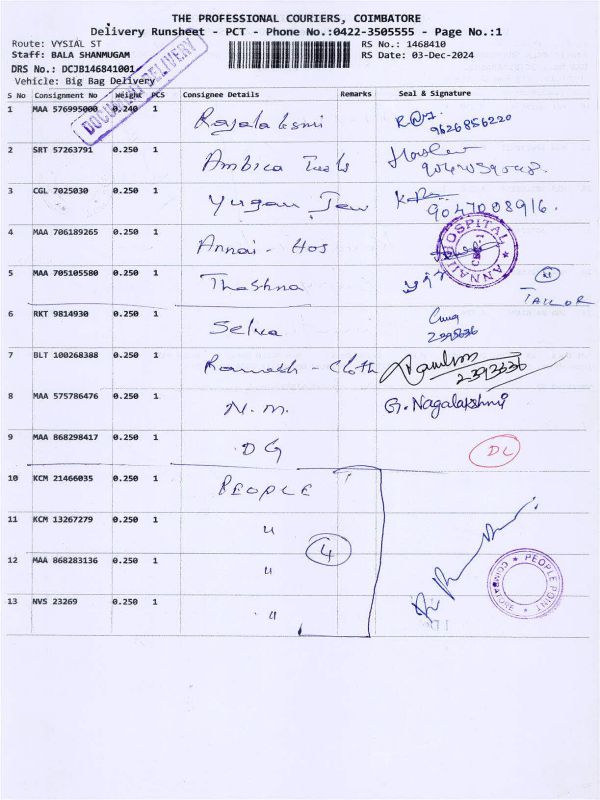 THE PROFESSIONAL COURIERS, COIMBATORE
Delivery Runsheet - PCT - Phone No.:0422-3505555 - Page No.:1
Route: VYSIAL ST RS No.: 1468410
Staff: BALA SHANMUGAM RS Date: 03-Dec-2024
DRS No.: DCJB146841001
Vehicle: Big Bag Delivery
DOCUMENT DELIVERY
S No Consignment No Weight PCS Consignee Details Remarks Seal & Signature
1 MAA 576995000 0.240 1 Rajalaksmi
9626856220
2 SRT 57263791 0.250 1 Ambica
3 CGL 7025030 0.250 1 Yugan Jew
9047008916.
4 MAA 706189265 0.250 1 Annai - Hos
ANNAI HOSPITAL
5 MAA 705105580 0.250 1 Thashna
TAILOR
6 RKT 9814930 0.250 1 Selva
7 BLT 100268388 0.250 1 Ramesh - Cloth
2393636
8 MAA 575786476 0.250 1 N.M. G. Nagalakshmi
9 MAA 868298417 0.250 1 DG DL
10 KCM 21466035 0.250 1 PEOPLE
11 KCM 13267279 0.250 1 "
4
12 MAA 868283136 0.250 1 "
PEOPLE POINT COIMBATORE
13 NVS 23269 0.250 1 "